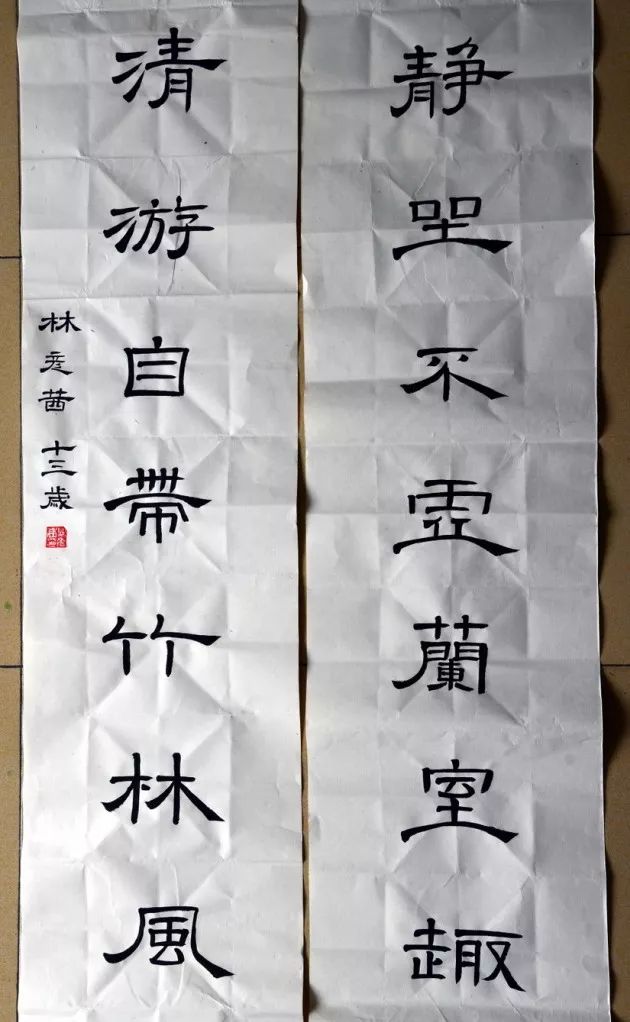 静坐不虚蘭室趣
清游自带竹林風
林彦茜 十三歳